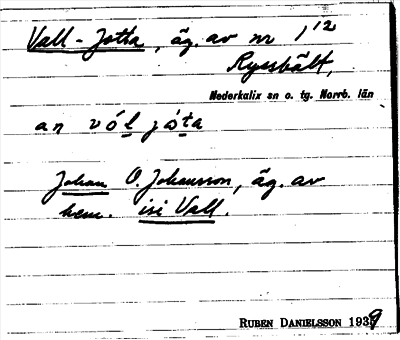 Vall-Jotta, äg. av nr 1¹²
Ryssbält,
Nederkalix sn o. tg. Norrb. län
an vó̱l jó́ta
Johan O. Johansson, äg. av
hem. isi Vall.
RUBEN DANIELSSON 1939